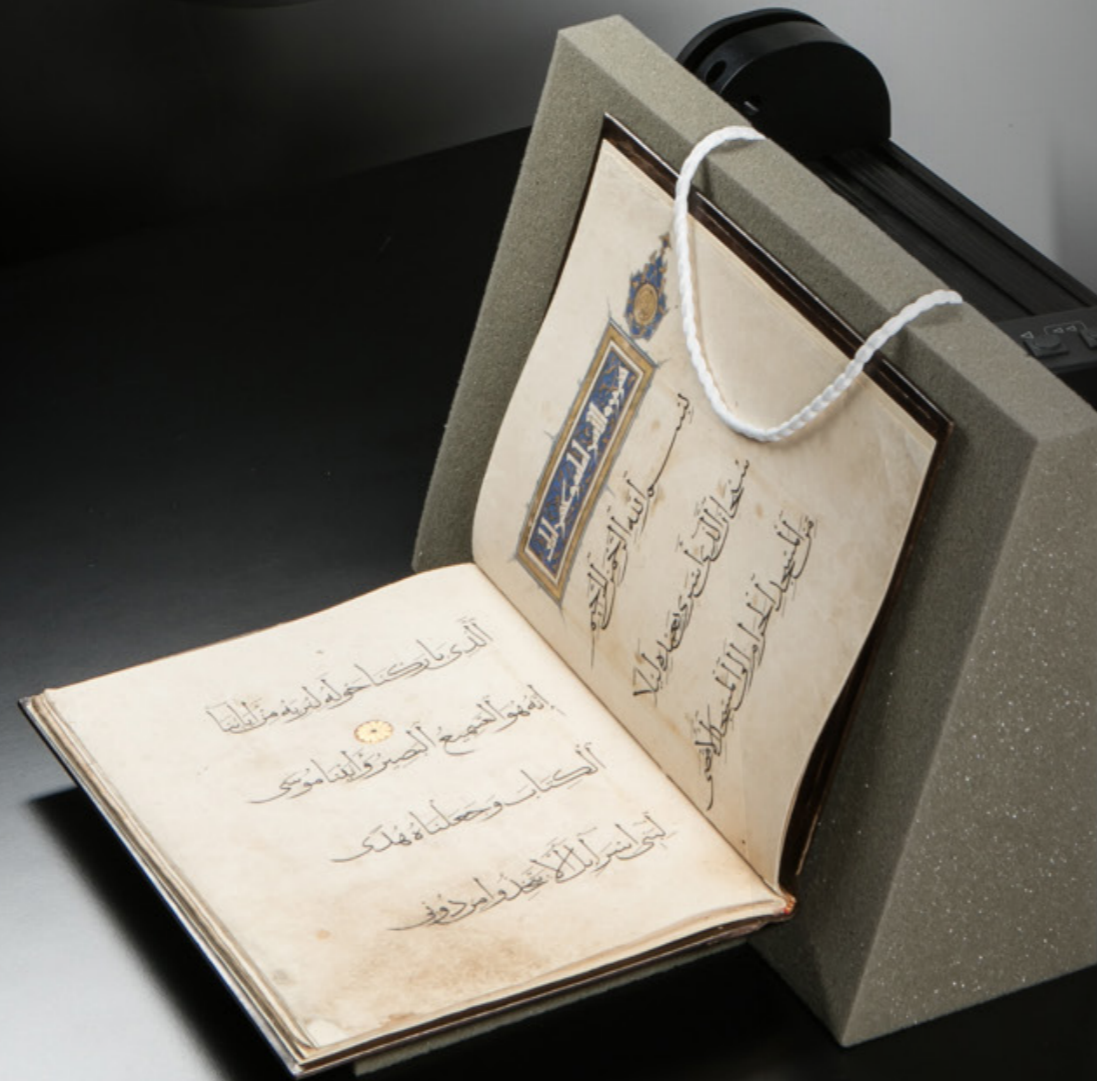 سورة
بسم الله الرحمن الرحيم
سبحان الذي أسرى بعبده ليلا
من المسجد الحرام إلى المسجد الأقصى
الذي باركنا حوله لنريه من آياتنا
إنه هو السميع البصير وآتينا موسى
الكتاب وجعلناه هدى
لبني إسرائيل ألا تتخذوا من دوني